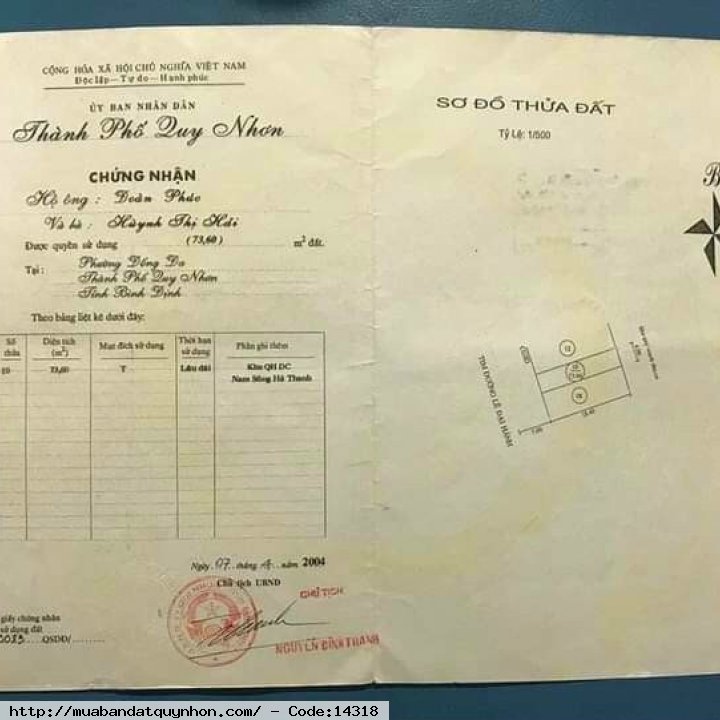 CỘNG HÒA XÃ HỘI CHỦ NGHĨA VIỆT NAM
Độc lập - Tự do - Hạnh phúc
ỦY BAN NHÂN DÂN
Thành Phố Quy Nhơn
CHỨNG NHẬN
Hộ ông : Đoàn Phúc
Và bà : Huỳnh Thị Hải
Được quyền sử dụng (73,60) m² đất.
Tại : Phường Đống Đa
Thành Phố Quy Nhơn
Tỉnh Bình Định
Theo bảng liệt kê dưới đây:
Số thửa Diện tích (m²) Mục đích sử dụng Thời hạn sử dụng Phần ghi thêm
10 73,60 T Lâu dài Khu QH DC
Nam Sông Hà Thanh
Ngày 07 tháng năm 2004
Chủ tịch UBND
CHỦ TỊCH
NGUYỄN ĐÌNH THANH
giấy chứng nhận
sử dụng đất
QSDĐ/
SƠ ĐỒ THỬA ĐẤT
Tỷ Lệ: 1/500
B
TIM ĐƯỜNG LÊ ĐẠI HÀNH
http://muabandatquynhon.com/ - Code:14318